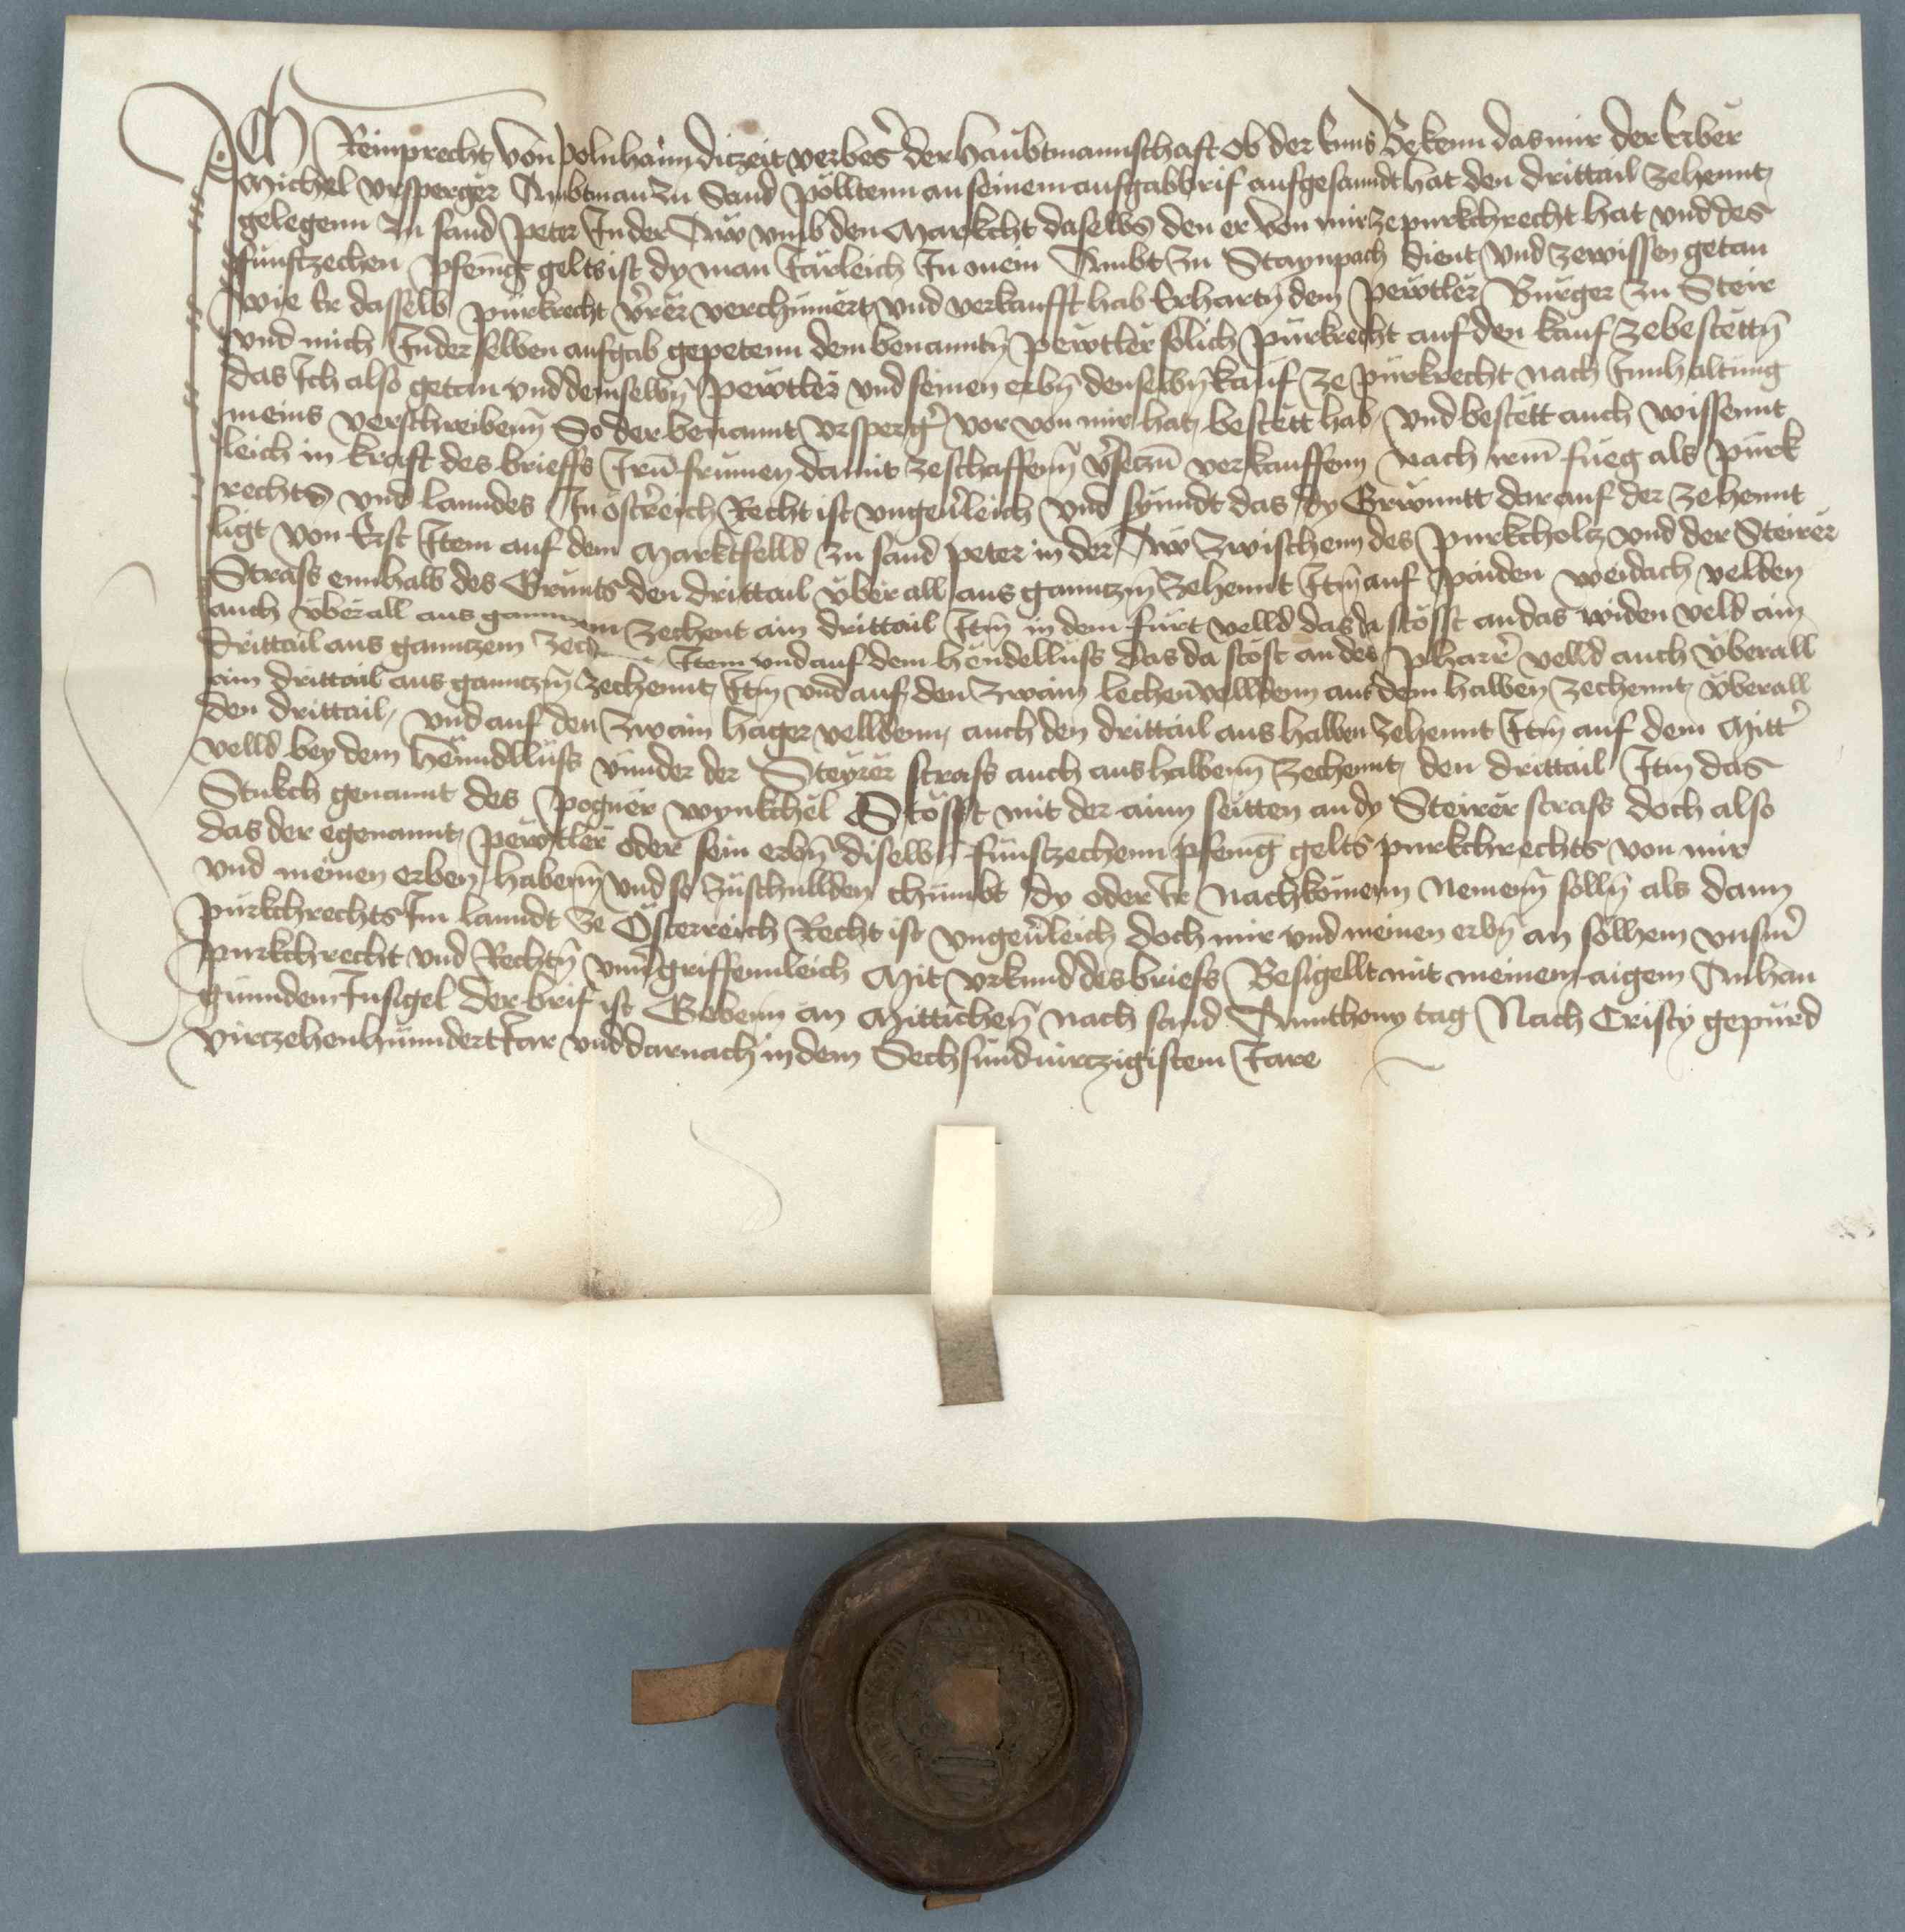 Ich Reinprecht von Polnhaim diczeit verbeser der Haubtmannschaft ob der Enns Bekenn das mir der Erber
Michel vrsperger Ambtman zu Sand Pölltenn an seinem aufgabbrif aufgesanndt hat den drittail zehennt
gelegenn zu sand Peter In der Aw vmb den Markcht daselbs den er von mir ze purkchrecht hat vnd des
fünfzechen pfeing gelts ist dy man Iärleich In mein Ambt zu Staynpach dient vnd ze wissen getan
wie Er dasselb purkrecht v̓rer verchümert vnd verkaufft hab Erhartn̄ dem pewtler Burger zu Steir
vnd mich In der selben aufgab gepetenn dem benanntn̄ pewtler solich purkrecht auf den kauf ze bestettn̄
das Ich also getan vnd demselbn̄ pewtler vnd seinen erbn̄ denselbn̄ kauf ze purkrecht nach Innhaltung
meins verschreibenn̄ So der benannt vrsperg̓ vor von mir hat bestett hab vnd bestett auch wissennt
leich in kraft des brieffs Irn̄ frumen damit ze schaffenn̄ v̓seczn̄ verkauffenn nach irm̄ fueg als purk
rechts vnd lanndes In öst̓reich Recht ist vngeu̓leich vnd synndt das dy Grünntt darauf der zehennt
ligt von Erst Item auf dem Marktfelld zu sand peter in der Aw zwischenn des purkcholz vnd der Steirer
Strass ennhalb des Grunts den drittail über all aus ganntzn̄ zehennt Itm̄ auf paiden weidach velden
auch überall aus ganntzem zechent ain drittail Itm̄ in dem furt velld das da stösst an das widen veld ain
drittail aus ganntzem zechennt Item vnd auf dem hendelluss das da stöst an des pharr̓ velld auch überall
ain drittail aus ganntzn̄ zechennt Itm̄ vnd auf den zwain lechen velldenn aus dem halben zechennt überall
den drittail vnd auf den zwain hager velldenn auch den drittail aus halben zehennt Itm̄ auf dem Mitt̓
velld bey dem henndlluss vnnder der Steyrer strass auch aus halbenn̄ zechennt den drittail Itm̄ das
Stukch genannt des pogner wynkchel Stösst mit der ainn seitten an dy Steirer strass doch also
das der egenannt pewtler oder sein erbn̄ diselbn̄ fünfzechenn pfenīg gelts purkchrechts von mir
vnd meinen erben habenn̄ vnd so zuschullden chumbt dy oder Ir nachkömenn nemenn̄ solln̄ als dann
purkchrechts Im lanndt ze Österreich Recht ist vngeu̓leich doch mir vnd meinen erbn̄ an solhem vnsm̓
purkchrecht vnd Rechtn̄ vnu̓griffennleich Mit vrkund des briefs Besigellt mit meinem aigem Anhan
gunndem Insigel Der brif ist Gebenn an Mittichenn̄ nach sand Annthony tag Nach Cristy gepurd
virczehenhunndert Iar vnd darnach in dem Sechsundvirczigistem Iare